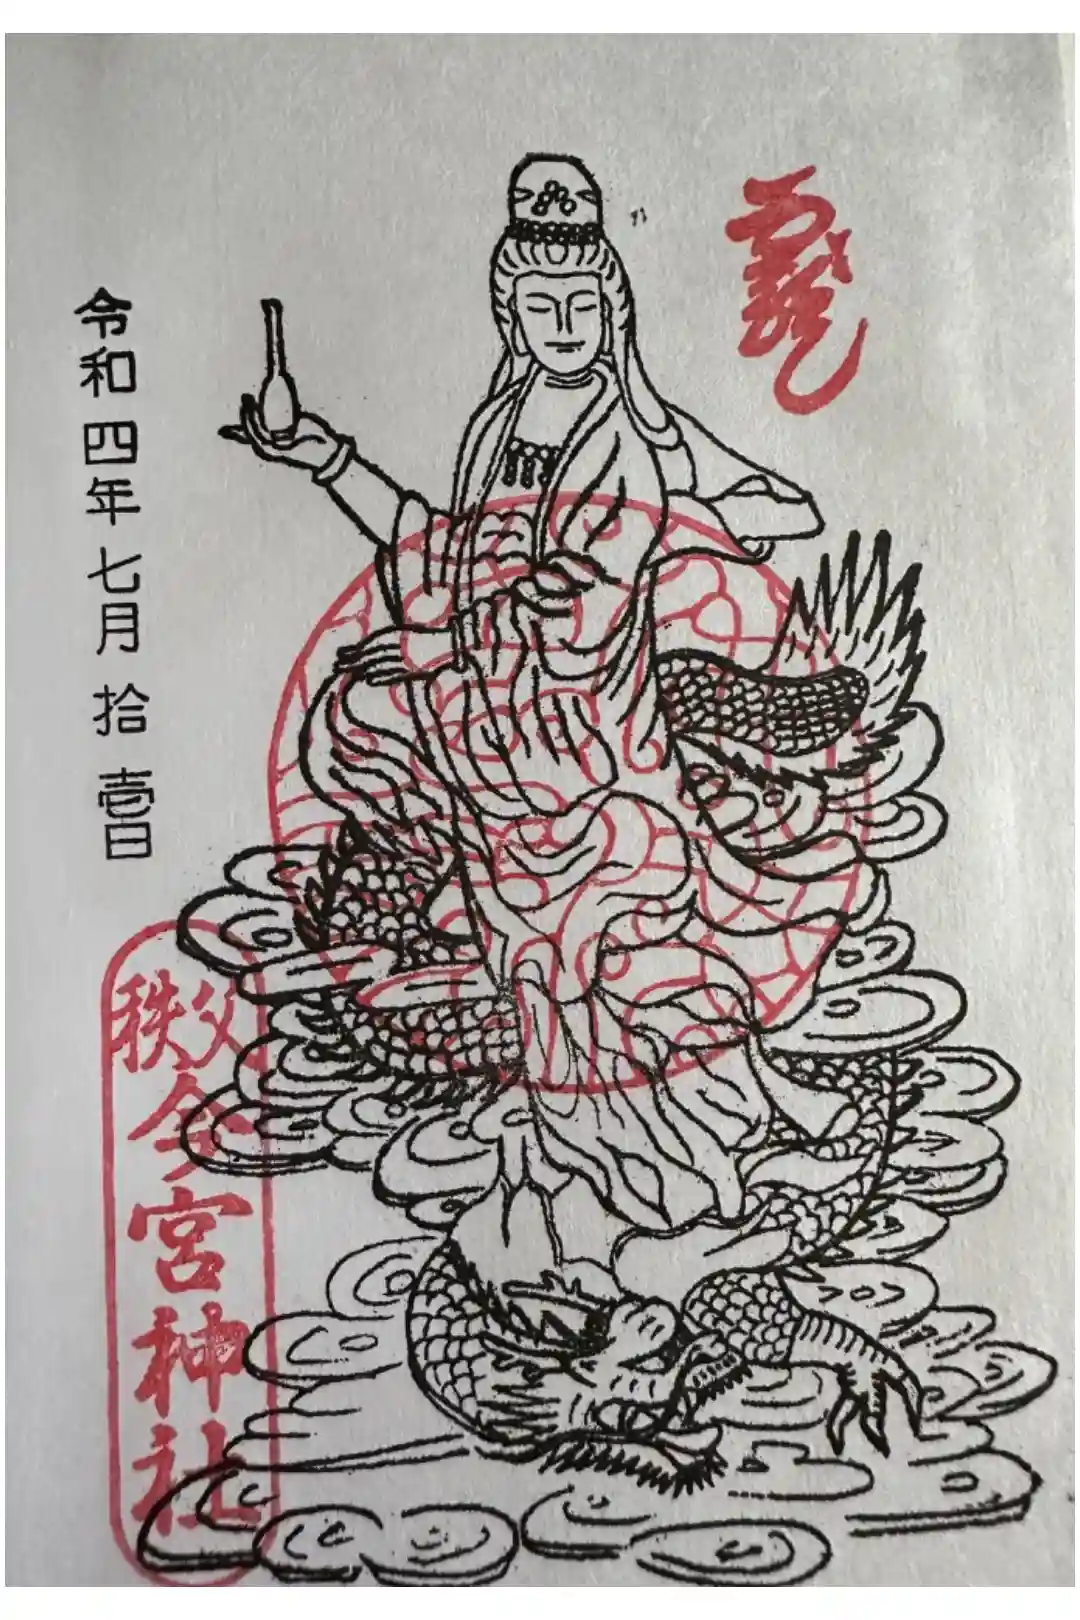 令和四年七月拾壹日
秩父今宮神社